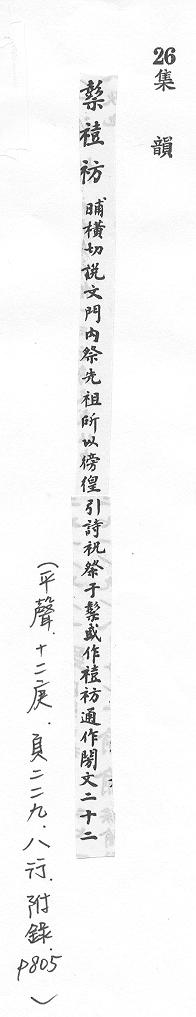 26集韻
𥛱 祊 晡橫切說文門內祭先祖所以徬徨引詩祝祭于𥛱或作 祊通作閍文二十二
(平聲.十二庚.頁二二九.八行.附錄.P805)